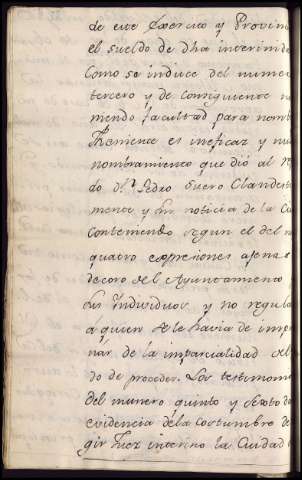 de este Exercito y Provin
el sueldo de dha interinid
Como se induce del nume
tercero y de consiguiente n
niendo facultad para nomb
Theniente es ineficaz y nu
nombramiento que dió al
do dn. Pedro Suero Clandest
mente y sin noticia de la Ciu
Conteniendo segun el del n
quatro expresiones agenas
decoro del Ayuntamiento
sus Individuos y no regula
á quien se le havia de imp
nar de la imparcialidad del
do de proceder. Los testimonio
del numero quinto y septo d
evidencia de la Costumbre d
gir Juez interino la Ciudad